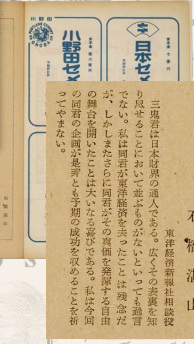 石橋湛山
東洋経済新報社相談役
三鬼君は日本財界の通人である。広くその表裏を知
り尽せることにおいて並ぶものがないといっても過言
でない。私は同君が東洋経済を去ったことは残念だ
が、しかしまたさらに同君がその真価を発揮する自由
の舞台を開いたことは大いなる喜びである。私は今回
の同君の企画が是非とも予期の成功を収めることを祈
ってやまない。
日本セメ
小野田セメ
小野田